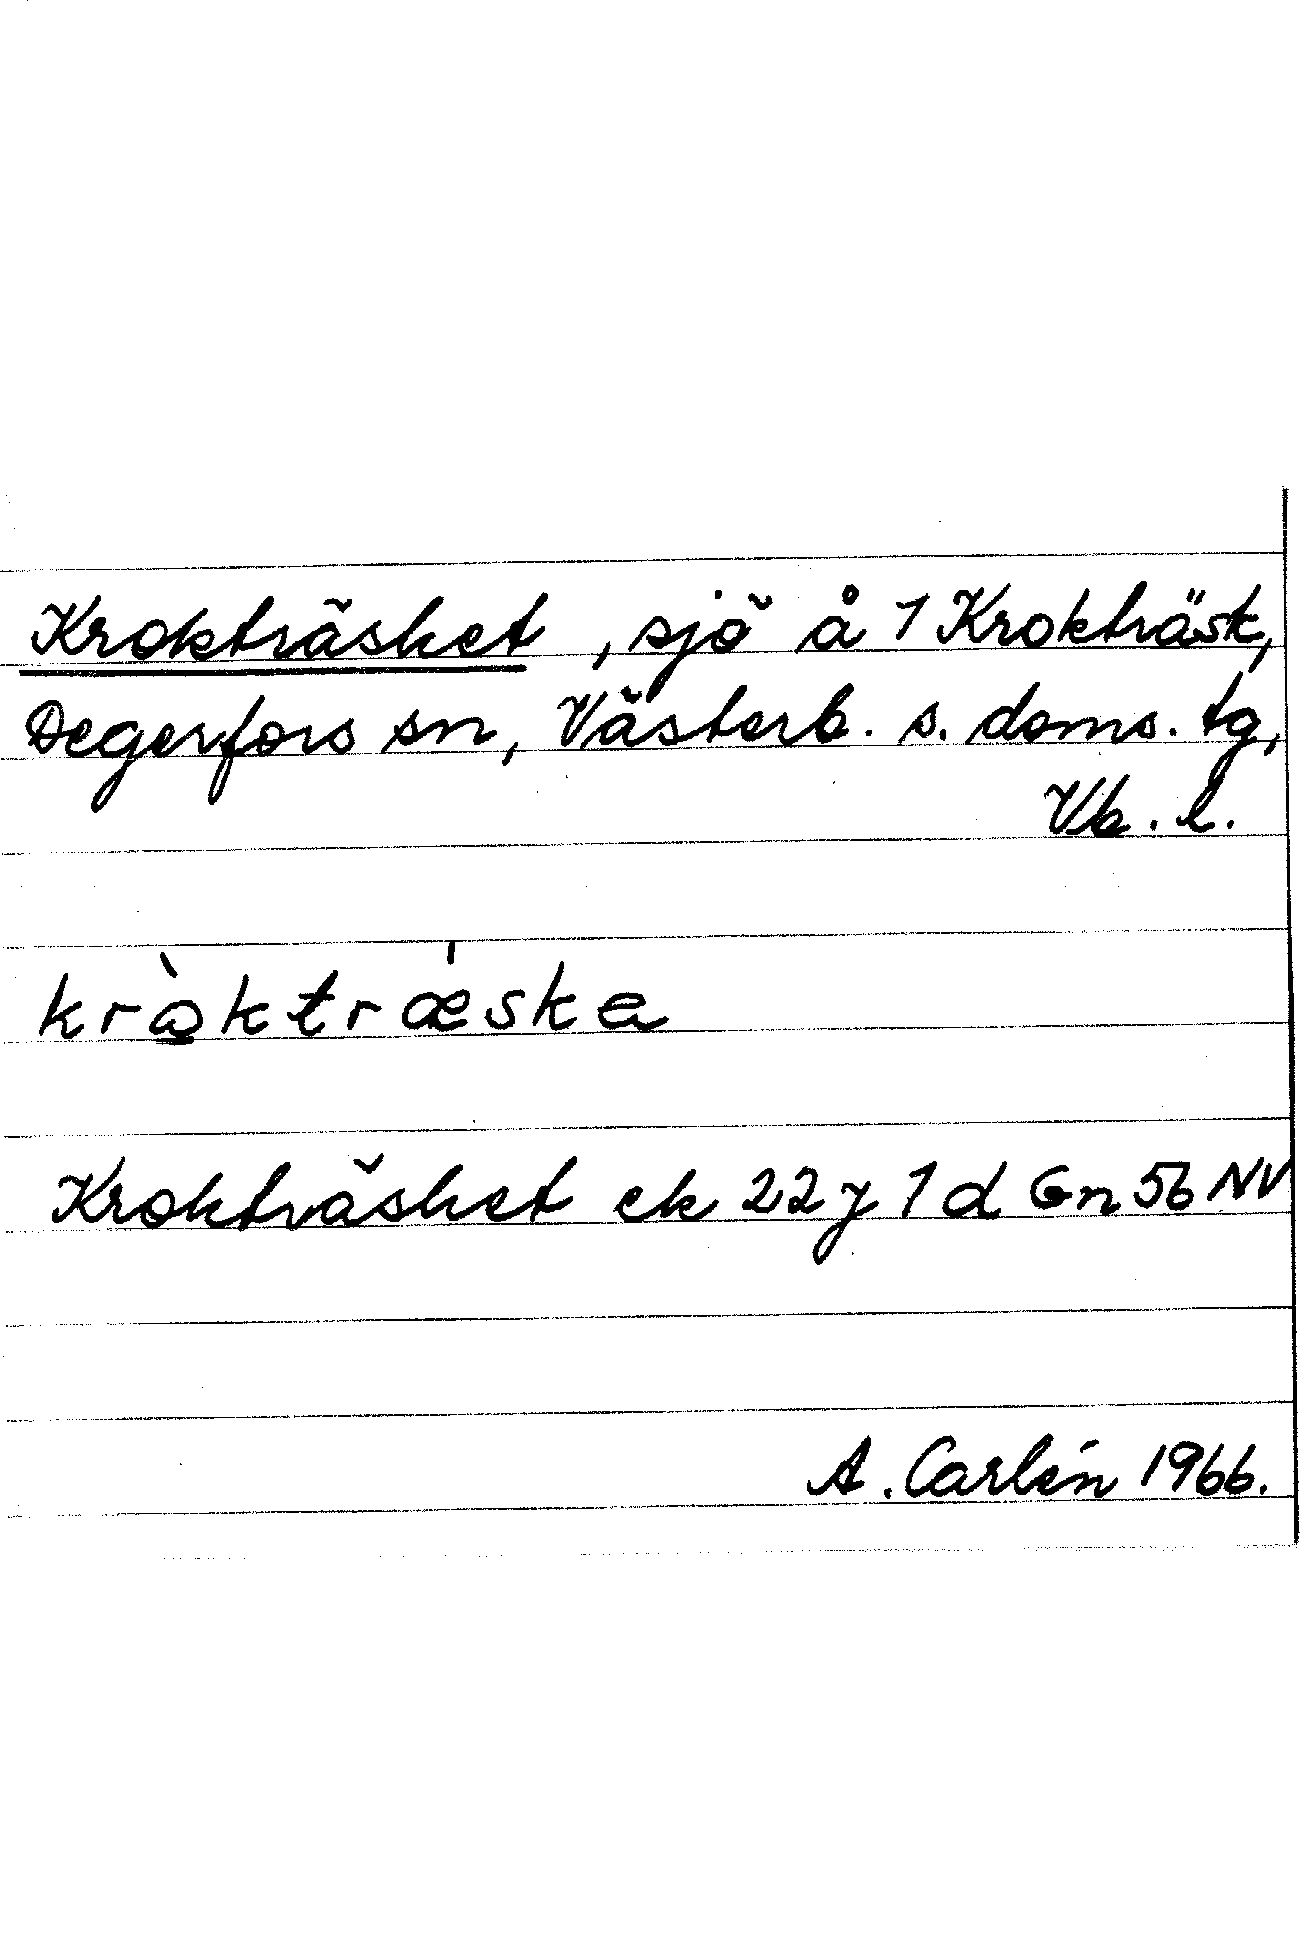 Krokträsket, sjö å 1 Krokträsk,
Degerfors sn, Västerb. s. doms. tg,
Vb. l.
kròktrǽska
Krokträsket ek 22 y 1 d Gn 56 NV
A. Carlén 1966.